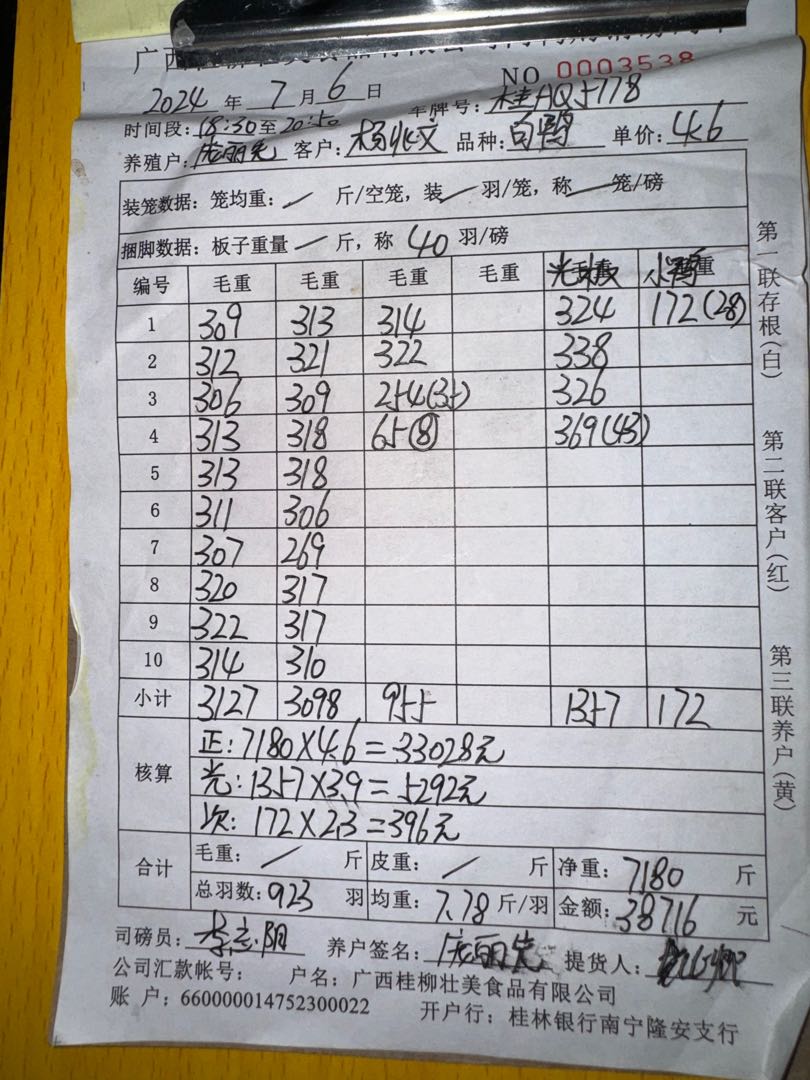 NO 0003538
2024 年 7 月 6 日 车牌号: 桂AQ5778
时间段: 18:30至20:50
养殖户: 庞丽先 客户: 杨兆文 品种: 白鸭 单价: 4.6
装笼数据: 笼均重: / 斤/空笼, 装 / 羽/笼, 称 / 笼/磅
捆脚数据: 板子重量 / 斤, 称 40 羽/磅
编号 毛重 毛重 毛重 毛重 光 小鸭
1 309 313 314 324 172(28)
2 312 321 322 338
3 306 309 254(35) 326
4 313 318 65(8) 369(43)
5 313 318
6 311 306
7 307 269
8 320 317
9 322 317
10 314 310
小计 3127 3098 955 1357 172
核算
正: 7180×4.6=33028元
光: 1357×3.9=5292元
次: 172×2.3=396元
合计
毛重: / 斤 皮重: / 斤 净重: 7180 斤
总羽数: 923 羽 均重: 7.78 斤/羽 金额: 38716 元
司磅员: 李志阴 养户签名: 庞丽先 提货人:
公司汇款帐号: 户名: 广西桂柳壮美食品有限公司
账 户: 660000014752300022 开户行: 桂林银行南宁隆安支行
第一联存根(白)
第二联客户(红)
第三联养户(黄)